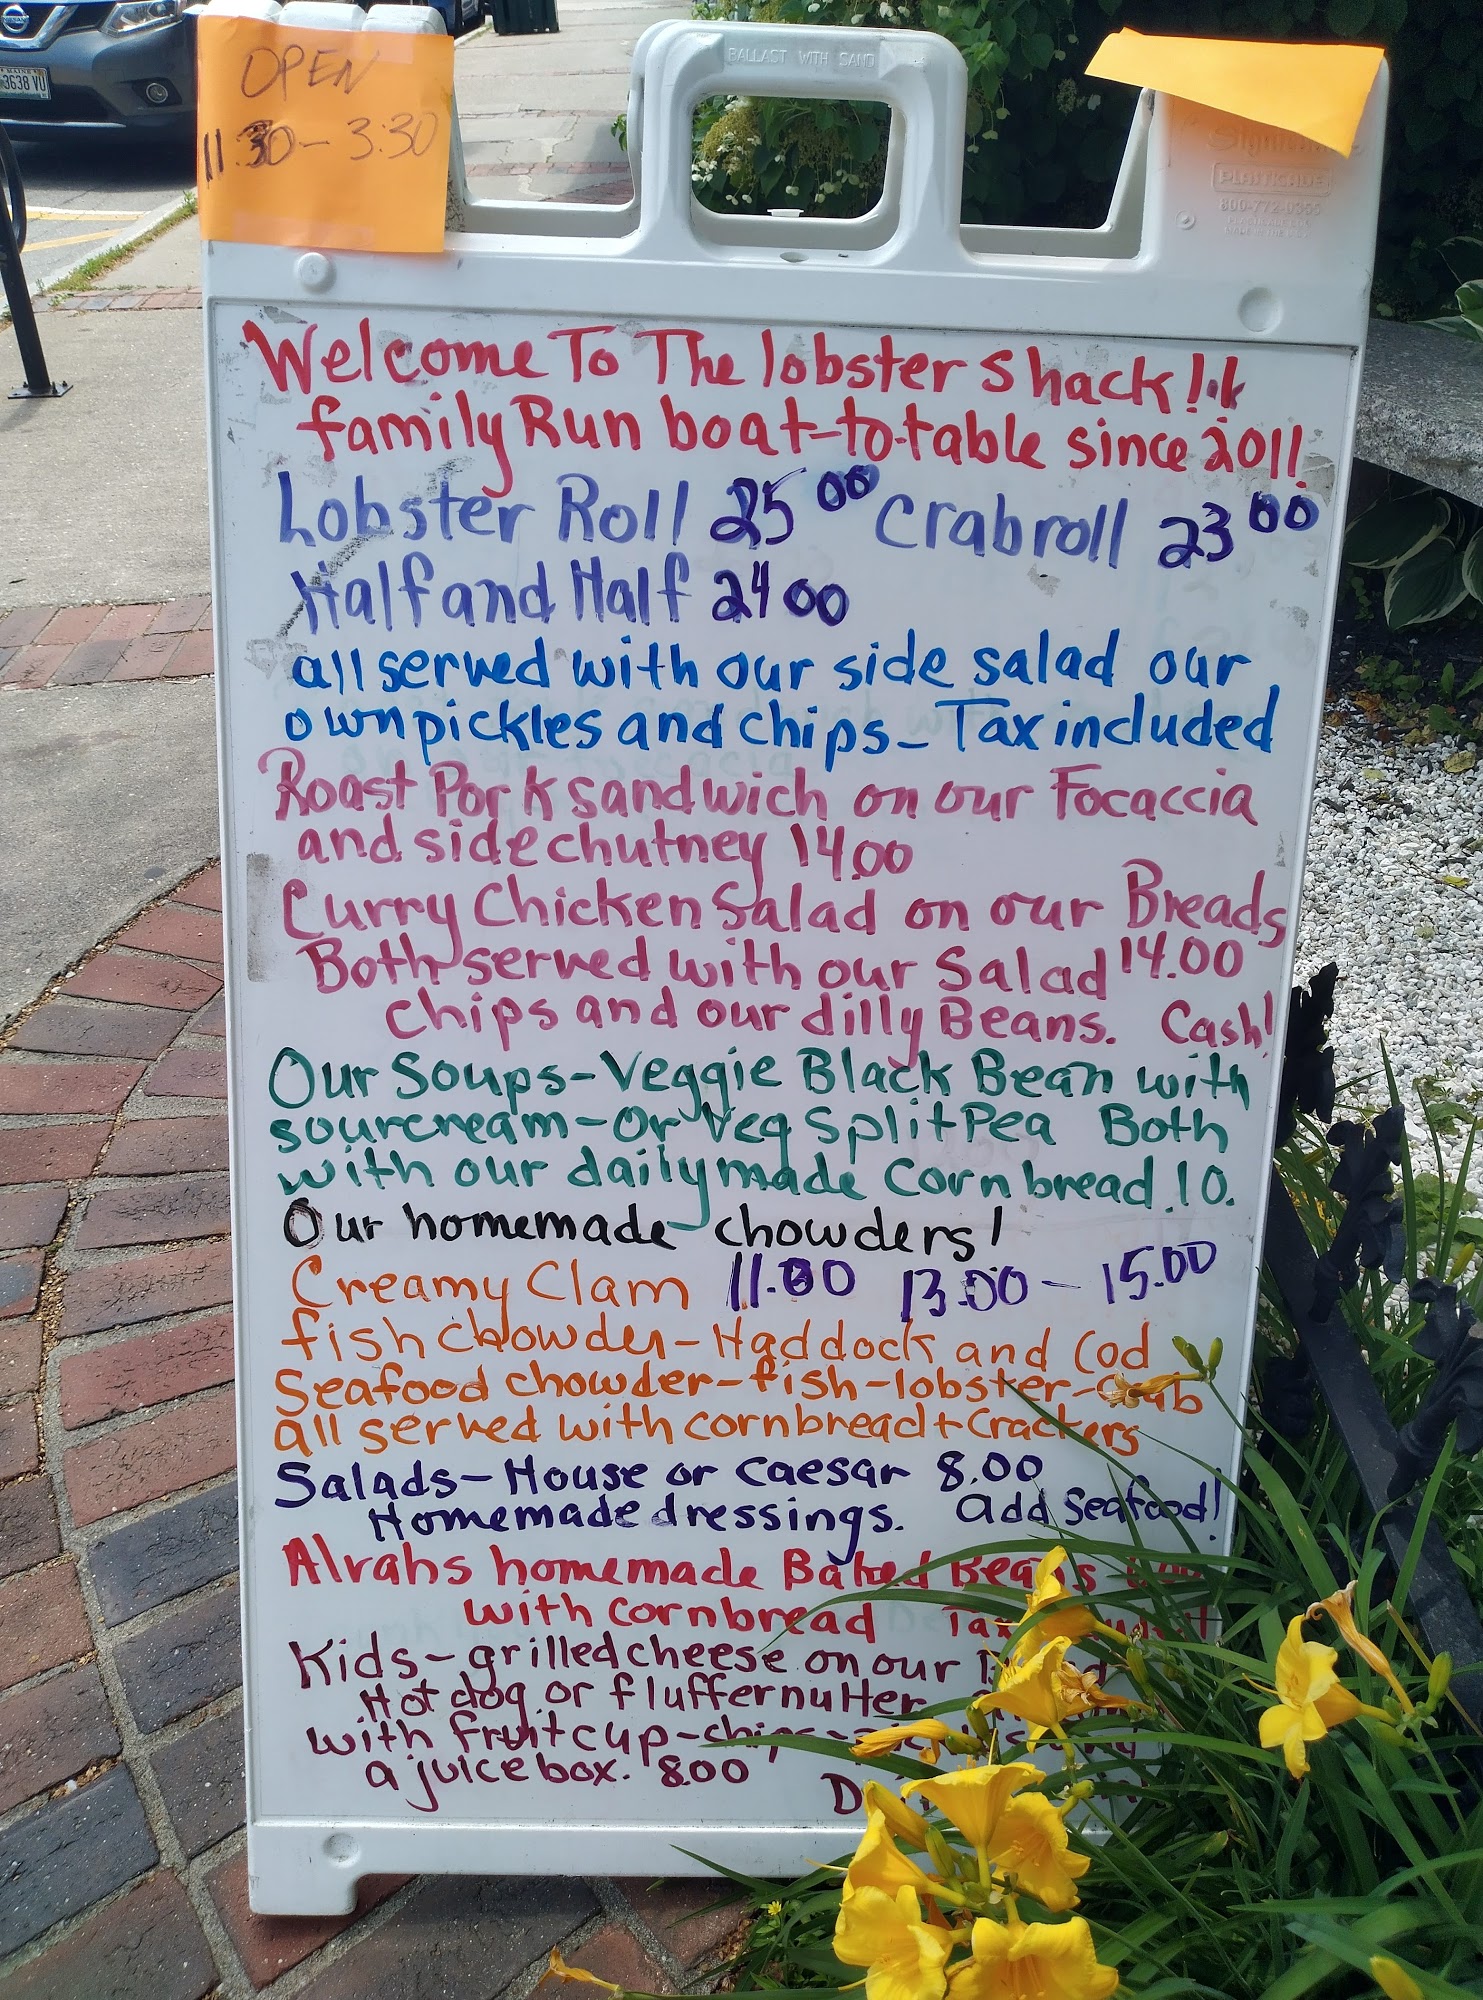 MAINE
3638 VU
OPEN
11:30 - 3:30
BALLAST WITH SAND
PLASTICADE
800-772-0355
Welcome To The lobster Shack!!!
family Run boat-to-table since 2011
Lobster Roll 25 00 Crab roll 23 00
Half and Half 24 00
all served with our side salad our
own pickles and chips - Tax included
Roast Pork sandwich on our Focaccia
and side chutney 14.00
Curry Chicken Salad on our Breads
Both served with our Salad 14.00
chips and our dilly Beans. Cash!
Our Soups - Veggie Black Bean with
sourcream - or Veg Split Pea Both
with our daily made Corn bread 10.
Our homemade chowders!
Creamy Clam 11.00 13.00 - 15.00
fish chowder - Haddock and Cod
Seafood chowder - fish - lobster - crab
all served with cornbread + Crackers
Salads - House or caesar 8.00
Homemade dressings. add Seafood!
Alrahs homemade Baked Beans
with cornbread Tax
Kids - grilled cheese on our
Hot dog or fluffernutter
with fruit cup - chips -
a juice box. 8.00